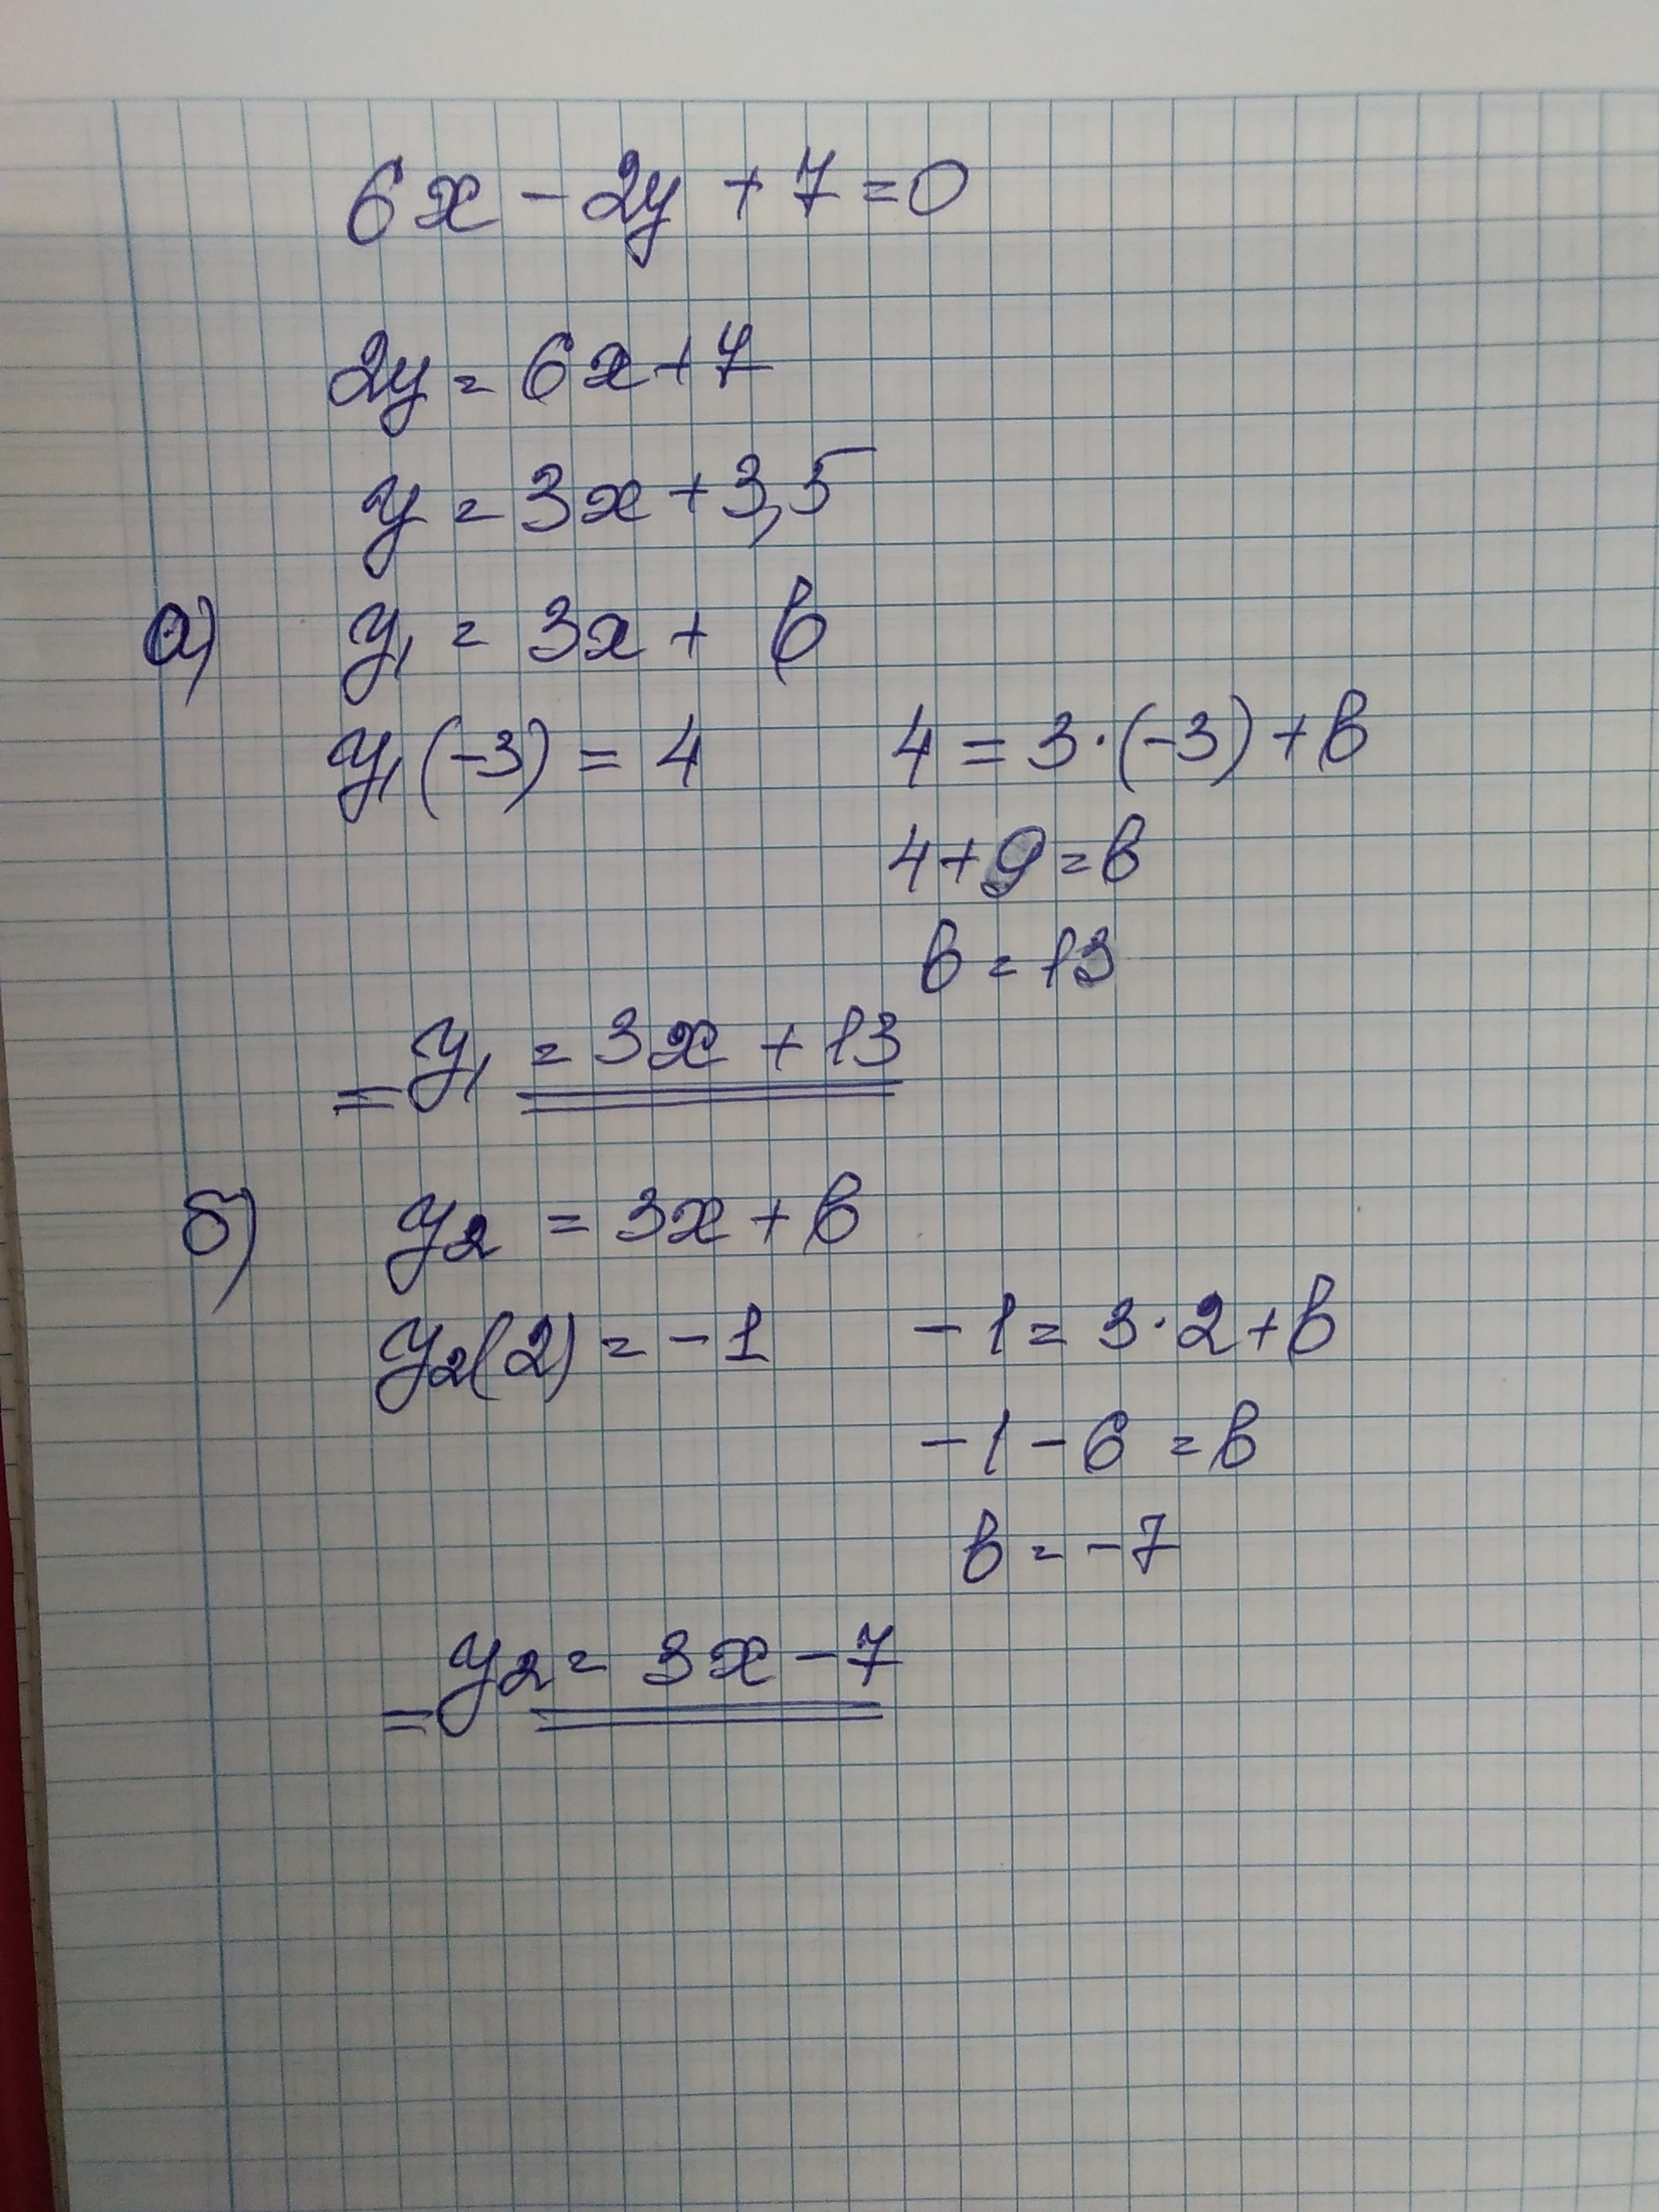 6x - 2y + 7 = 0
2y = 6x + 7
y = 3x + 3,5
а) y₁ = 3x + b
y₁(-3) = 4    4 = 3·(-3) + b
4 + 9 = b
b = 13
y₁ = 3x + 13
б) y₂ = 3x + b
y₂(2) = -1    -1 = 3·2 + b
-1 - 6 = b
b = -7
y₂ = 3x - 7